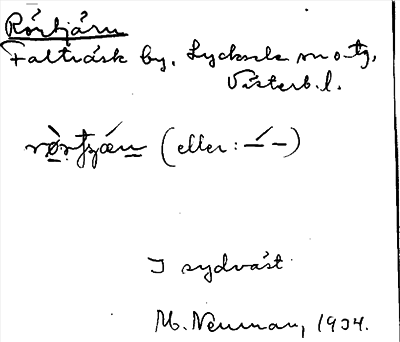 Rörtjärn
Falträsk by, Lycksele sn o tg,
Västerb. l.
(eller: –́ –)
I sydväst
M. Neuman, 1934.